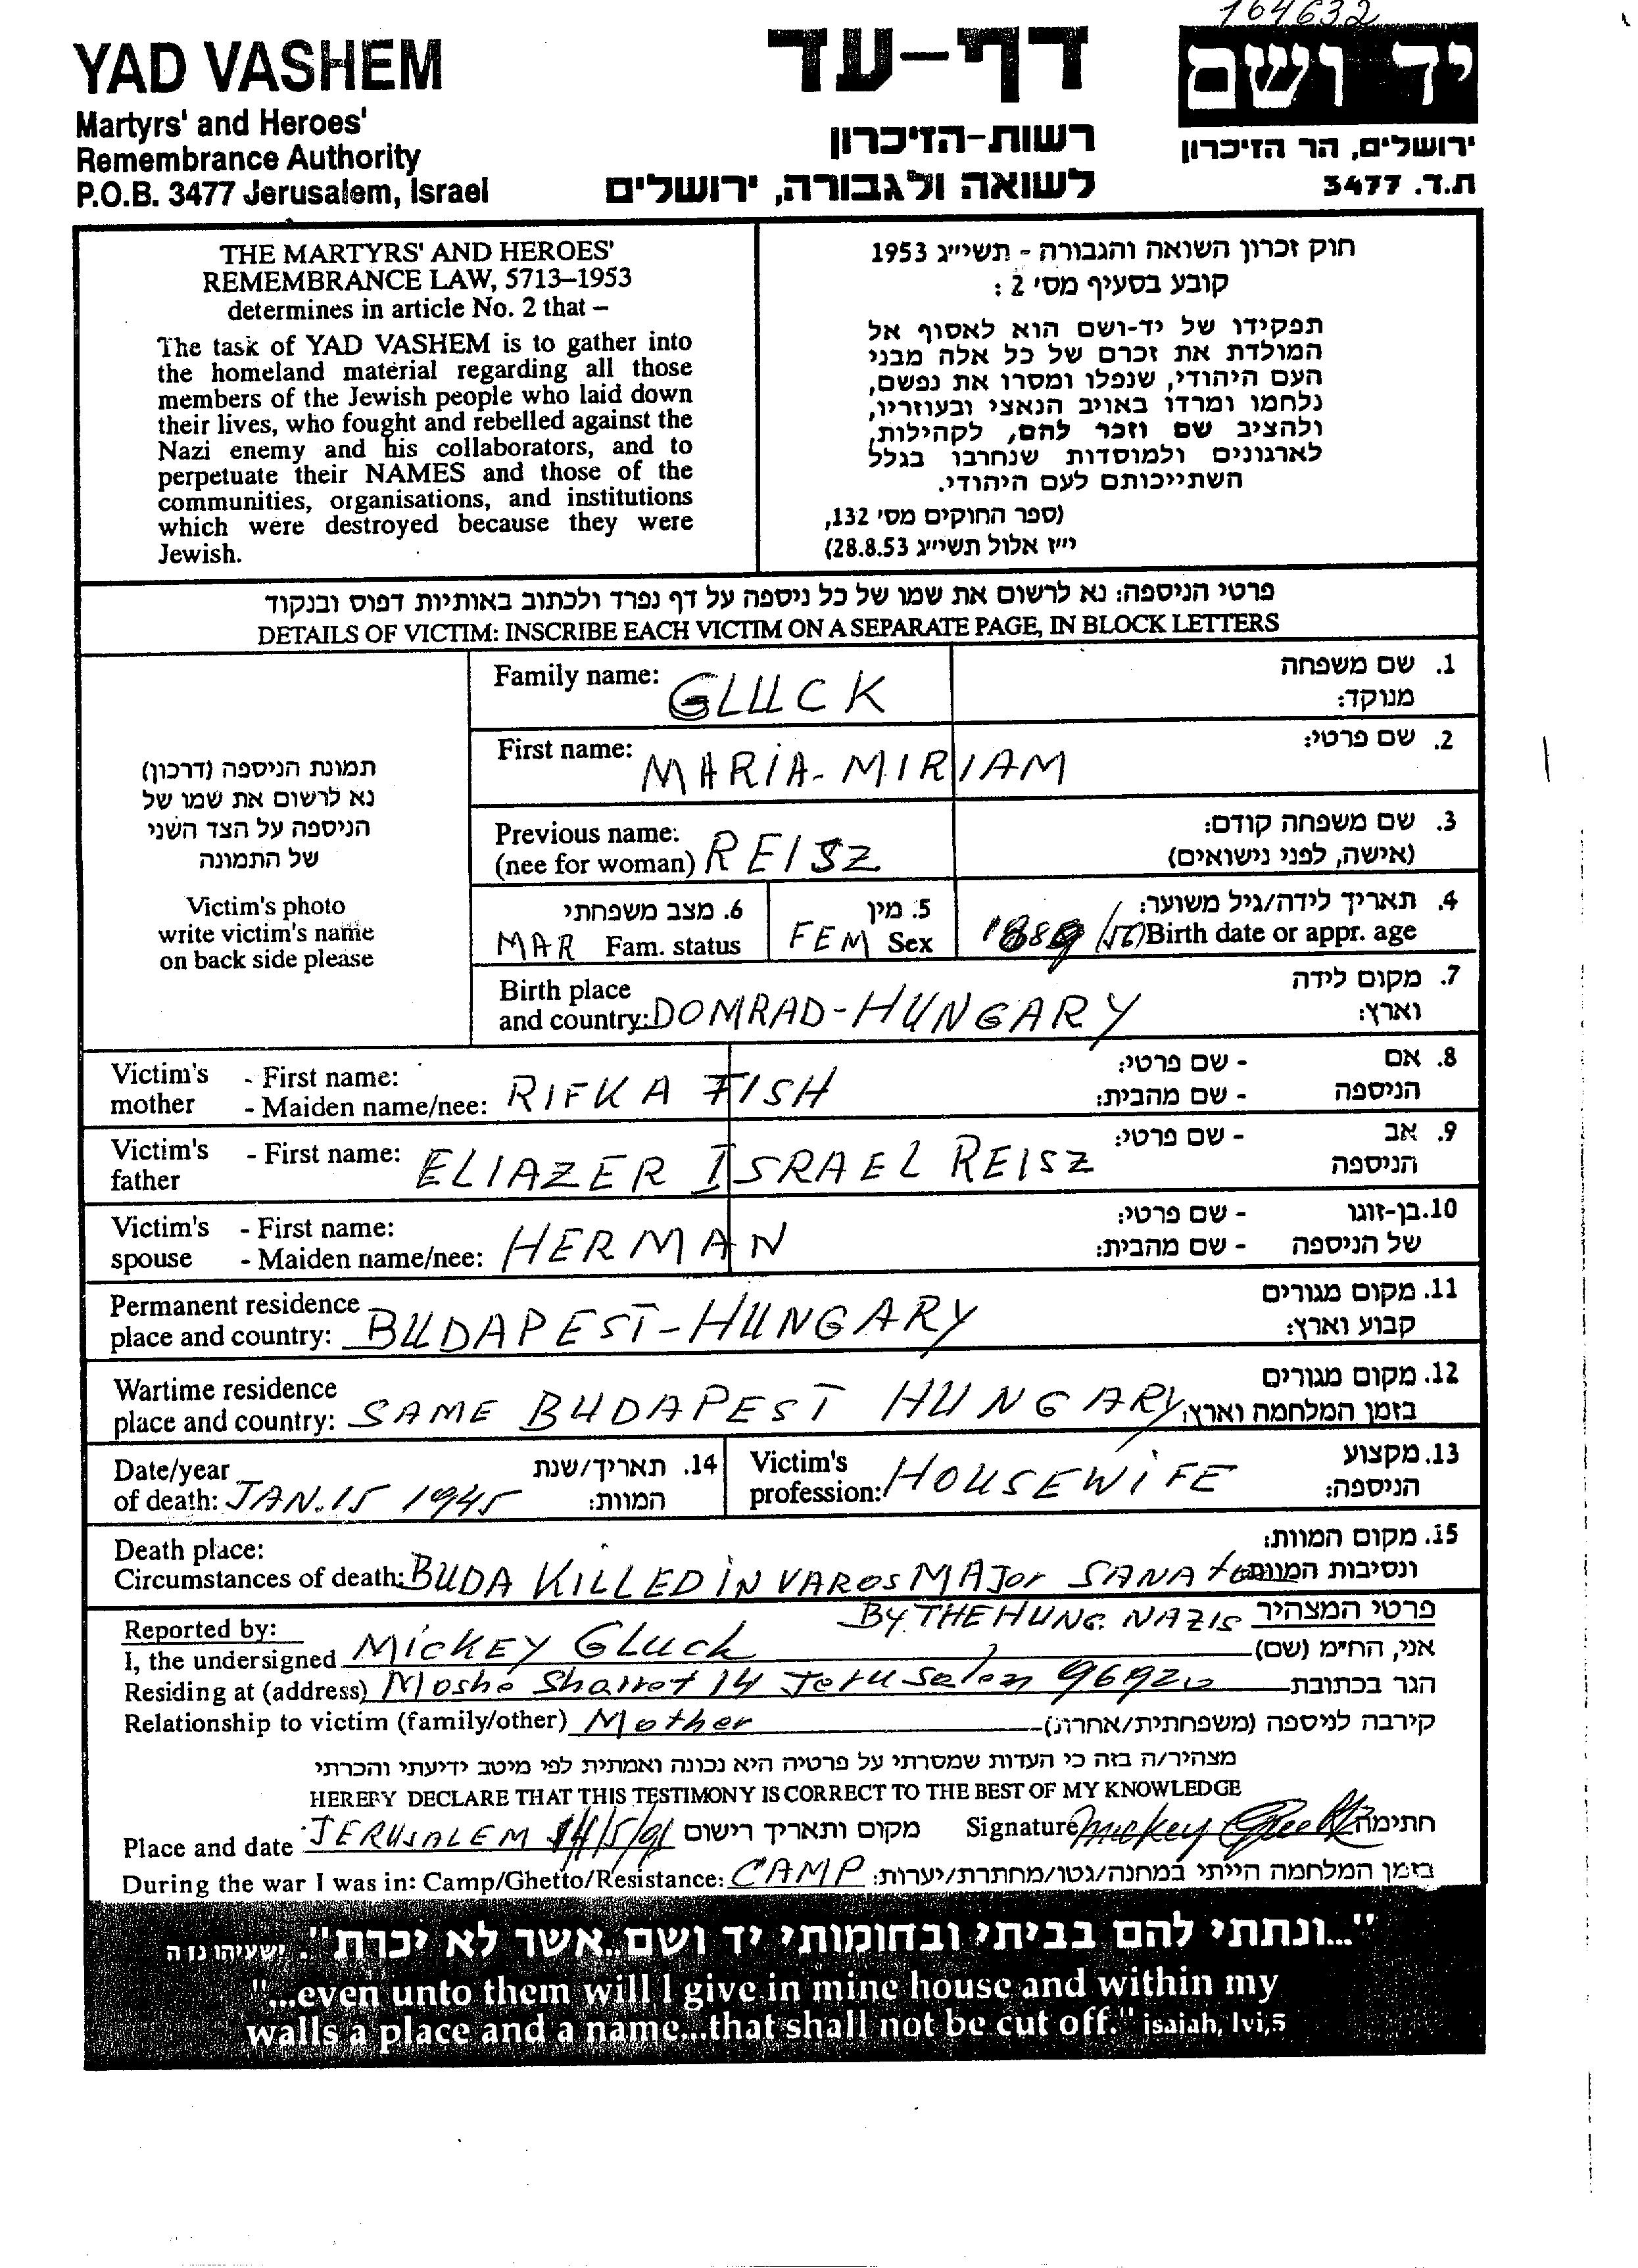 164632
YAD VASHEM
Martyrs' and Heroes'
Remembrance Authority
P.O.B. 3477 Jerusalem, Israel
דף-עד
רשות-הזיכרון
לשואה ולגבורה, ירושלים
יד ושם
ירושלים, הר הזיכרון
ת.ד. 3477
THE MARTYRS' AND HEROES'
REMEMBRANCE LAW, 5713–1953
determines in article No. 2 that –
The task of YAD VASHEM is to gather into
the homeland material regarding all those
members of the Jewish people who laid down
their lives, who fought and rebelled against the
Nazi enemy and his collaborators, and to
perpetuate their NAMES and those of the
communities, organisations, and institutions
which were destroyed because they were
Jewish.
חוק זכרון השואה והגבורה - תשי״ג 1953
קובע בסעיף מס׳ 2:
תפקידו של יד-ושם הוא לאסוף אל
המולדת את זכרם של כל אלה מבני
העם היהודי, שנפלו ומסרו את נפשם,
נלחמו ומרדו באויב הנאצי ובעוזריו,
ולהציב שם וזכר להם, לקהילות,
לארגונים ולמוסדות שנחרבו בגלל
השתייכותם לעם היהודי.
(ספר החוקים מס׳ 132,
י״ז אלול תשי״ג 28.8.53)
פרטי הניספה: נא לרשום את שמו של כל ניספה על דף נפרד ולכתוב באותיות דפוס ובנקוד
DETAILS OF VICTIM: INSCRIBE EACH VICTIM ON A SEPARATE PAGE, IN BLOCK LETTERS
תמונת הניספה (דרכון)
נא לרשום את שמו של
הניספה על הצד השני
של התמונה
Victim's photo
write victim's name
on back side please
Family name: GLUCK
1. שם משפחה
מנוקד:
First name: MARIA-MIRIAM
2. שם פרטי:
Previous name:
(nee for woman) REISZ
3. שם משפחה קודם:
(אישה, לפני נישואים)
6. מצב משפחתי
MAR Fam. status
5. מין
FEM Sex
4. תאריך לידה/גיל משוער:
1889 /56) Birth date or appr. age
Birth place
and country: DOMRAD-HUNGARY
7. מקום לידה
וארץ:
Victim's mother - First name:
- Maiden name/nee: RIFKA FISH
8. אם הניספה - שם פרטי:
- שם מהבית:
Victim's father - First name: ELIAZER ISRAEL REISZ
9. אב הניספה - שם פרטי:
Victim's spouse - First name:
- Maiden name/nee: HERMAN
10. בן-זוגו של הניספה - שם פרטי:
- שם מהבית:
Permanent residence
place and country: BUDAPEST-HUNGARY
11. מקום מגורים
קבוע וארץ:
Wartime residence
place and country: SAME BUDAPEST HUNGARY
12. מקום מגורים
בזמן המלחמה וארץ:
Date/year
of death: JAN.15 1945
14. תאריך/שנת
המוות:
Victim's
profession: HOUSEWIFE
13. מקצוע
הניספה:
Death place:
Circumstances of death: BUDA KILLED IN VAROSMAJor SANAto
BY THE HUNG. NAZIS
15. מקום המוות:
ונסיבות המוות:
פרטי המצהיר
Reported by:
I, the undersigned Mickey Gluck אני, החי״מ (שם)
Residing at (address) Moshe Sharret 14 Jerusalem הגר בכתובת
Relationship to victim (family/other) Mother קירבה לניספה (משפחתית/אחרת)
מצהיר/ה בזה כי העדות שמסרתי על פרטיה היא נכונה ואמתית לפי מיטב ידיעתי והכרתי
HEREBY DECLARE THAT THIS TESTIMONY IS CORRECT TO THE BEST OF MY KNOWLEDGE
Place and date JERUSALEM 14/5/91 מקום ותאריך רישום Signature Mickey Gluck חתימה
During the war I was in: Camp/Ghetto/Resistance: CAMP בזמן המלחמה הייתי במחנה/גטו/מחתרת/יערות:
"...ונתתי להם בביתי ובחומותי יד ושם..אשר לא יכרת". ישעיהו נו ה
"...even unto them will I give in mine house and within my
walls a place and a name...that shall not be cut off." isaiah, lvi,5